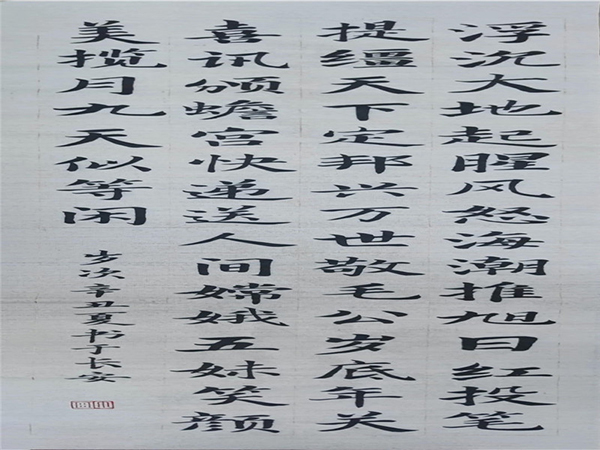 浮沉大地起腥风怒海潮推旭日红投笔
提缰天下定邦兴万世敬毛公岁底年关
喜讯颁蟾宫快递送人间嫦娥五妹笑颜
美揽月九天似等闲
岁次辛丑夏书于长安